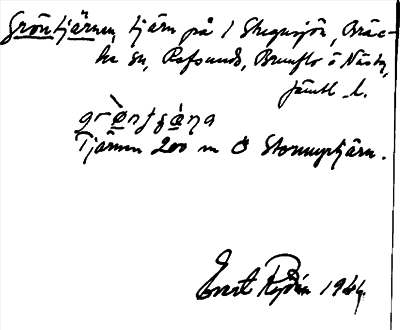 Gröntjärnen, tjärn på 1 Stugusjö, Bräc-
ke sn, Refsunds, Brunflo o Näsby,
Jämtl. l.
grø̀ntʃæ̀ṇa
Tjärnen 200 m Ö Stormyrtjärn.
Ernst Rydén 1944.